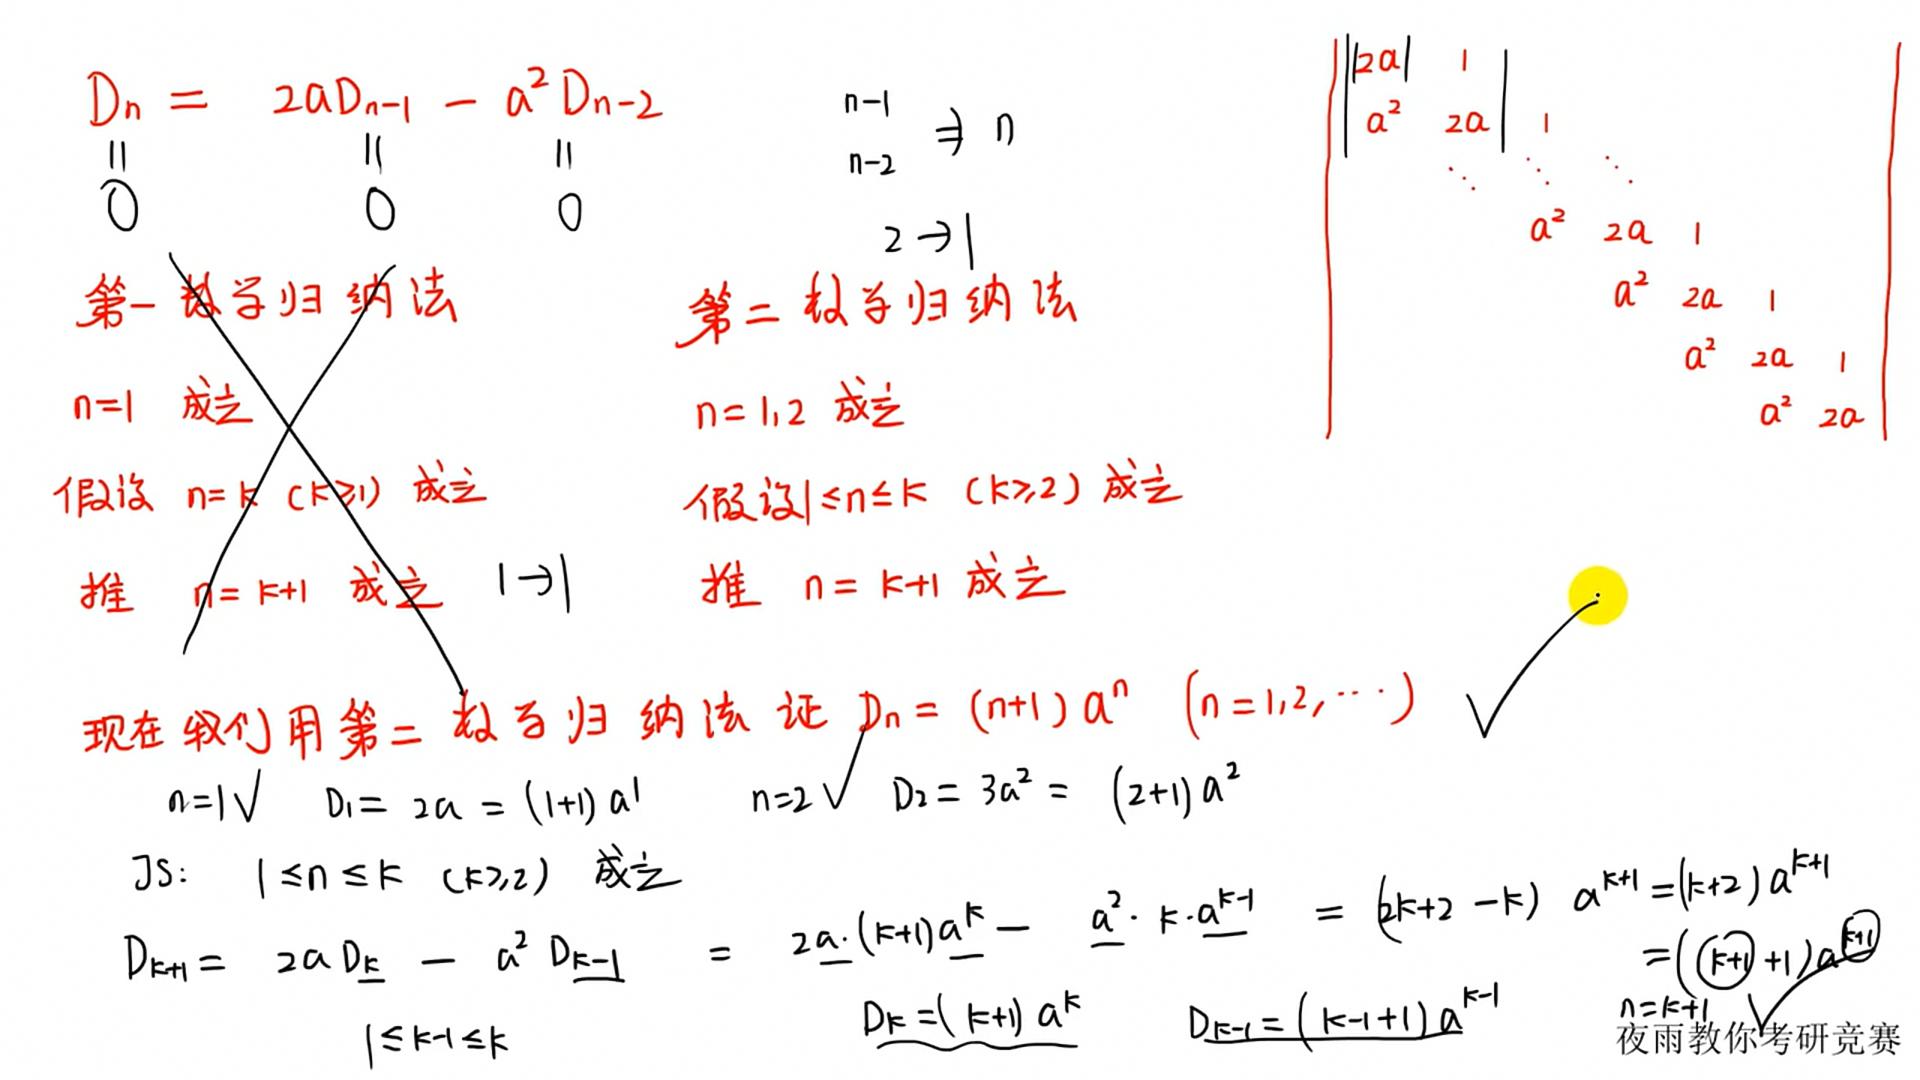 Dn = 2aDn-1 - a²Dn-2
|| || ||
0 0 0
n-1
n-2 ⇒ n
2→1
|2a| 1
a² 2a 1
⋱ ⋱ ⋱
a² 2a 1
a² 2a 1
a² 2a 1
a² 2a
第一数学归纳法
n=1 成立
假设 n=k (k≥1) 成立
推 n=k+1 成立 1→1
第二数学归纳法
n=1,2 成立
假设1≤n≤k (k≥2) 成立
推 n=k+1 成立
现在我们用第二数学归纳法证 Dn = (n+1)aⁿ (n=1,2,…) √
n=1√ D1 = 2a = (1+1)a¹ n=2√ D2 = 3a² = (2+1)a²
JS: 1≤n≤k (k≥2) 成立
Dk+1 = 2aDk - a²Dk-1 = 2a·(k+1)a^k - a²·k·a^(k-1) = (2k+2-k) a^(k+1) = (k+2)a^(k+1)
= ((k+1)+1)a^(k+1)
1≤k-1≤k
Dk = (k+1)a^k Dk-1 = (k-1+1)a^(k-1)
n=k+1 √
夜雨教你考研竞赛